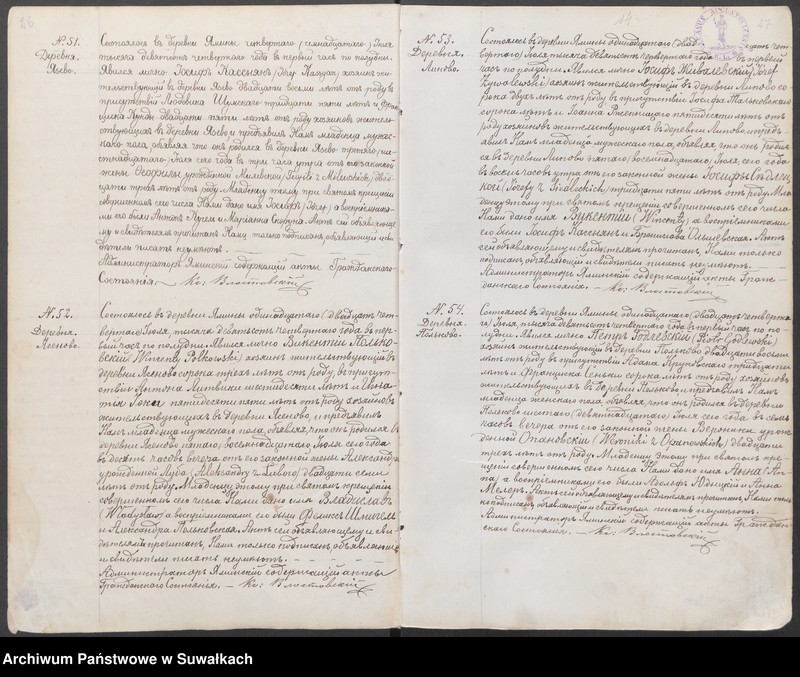 26
№ 51.
Деревня
Ясево.
Состоялось въ деревни Ямины четвертаго (семнадцатаго) Іюля
тысяча девятьсотъ четвертаго года въ первый часъ по полудни.
Явился лично Іосифъ Касьянъ (Józef Kasyan), хозяинъ жи-
тельствующій въ деревни Ясево двадцати восьми лѣтъ отъ роду въ
присутствіи Людовика тридцати пяти лѣтъ и Фран-
цишка двадцати пяти лѣтъ отъ роду хозяиновъ житель-
ствующихъ въ деревни Ясево и предъявилъ Намъ младенца мужес-
каго пола, объявляя что онъ родился въ деревни Ясево третьяго (шес-
тнадцатаго) Іюля сего года въ три часа утра отъ его законной
жены Теофили урожденной Милевской (Teofili z Milewskich) двад-
цати трехъ лѣтъ отъ роду. Младенцу этому при святомъ крещеніи
совершенномъ сего числа Нами дано имя Іосифъ (Józef) а воспріемника-
ми его были Антонъ и Маріанна Актъ сей объявляюще-
му и свидѣтелямъ прочитанъ, Нами только подписанъ, объявляющій и сви-
дѣтели писать неумѣютъ.
Администраторъ Яминскій содержащій акты Гражданскаго
Состоянія. Кс: Влостовскій
№ 52.
Деревня
Ясеново.
Состоялось въ деревни Ямины одинадцатаго (двадцать чет-
вертаго) Іюля, тысяча девятьсотъ четвертаго года въ пер-
вый часъ по полудни. Явился лично Викентій Польков-
скій (Wincenty Polkowski) хозяинъ жительствующій въ
деревни Ясеново сорока трехъ лѣтъ отъ роду, въ присут-
ствіи Антона Литвинки шестидесяти лѣтъ и Игна-
тія пятидесяти пяти лѣтъ отъ роду хозяиновъ
жительствующихъ въ деревни Ясеново, и предъявилъ
Намъ младенца мужескаго пола, объявляя, что онъ родился въ
деревни Ясеново пятаго (восемнадцатаго) Іюля сего года
въ десять часовъ вечера отъ его законной жены Александры
урожденной Луба (Aleksandry z Lubow) двадцати семи
лѣтъ отъ роду. Младенцу этому при святомъ крещеніи
совершенномъ сего числа Нами дано имя Владиславъ
(Władysław) а воспріемниками его были Феликсъ Шмигель
и Александра Польковская. Актъ сей объявляющему и сви-
дѣтелямъ прочитанъ, Нами только подписанъ, объявляющій
и свидѣтели писать неумѣютъ.
Администраторъ Яминскій содержащій акты
Гражданскаго Состоянія. Кс: Влостовскій
27
№ 53.
Деревня
Липово.
Состоялось въ деревни Ямины одинадцатаго (двадцать чет-
вертаго) Іюля тысяча девятьсотъ четвертаго года въ первый
часъ по полудни. Явился лично Іосифъ Живалевскій (Józef
Żywalewski) хозяинъ жительствующій въ деревни Липово со-
рока двухъ лѣтъ отъ роду въ присутствіи Іосифа Тальковскаго
сорока лѣтъ и Іоанна пятидесяти лѣтъ отъ
роду хозяиновъ жительствующихъ въ деревни Липово, и предъ-
явилъ Намъ младенца мужескаго пола, объявляя что онъ родил-
ся въ деревни Липово пятаго (восемнадцатаго) Іюля, сего года
въ восемь часовъ утра отъ его законной жены Іосифы Сѣдлец-
кой (Józefy z Siedleckich) тридцати пяти лѣтъ отъ роду. Мла-
денцу этому при святомъ крещеніи совершенномъ сего числа
Нами дано имя Викентій (Wincenty) а воспріемниками
его были Іосифъ Касьянъ и Бронислава Ольшевская. Актъ
сей объявляющему и свидѣтелямъ прочитанъ, Нами только
подписанъ, объявляющій и свидѣтели писать неумѣютъ.
Администраторъ Яминскій содержащій акты Граж-
данскаго Состоянія. Кс: Влостовскій
№ 54.
Деревня
Польково.
Состоялось въ деревни Ямины одинадцатаго (двадцать четверта-
го) Іюля, тысяча девятьсотъ четвертаго года въ первый часъ по по-
лудни. Явился лично Петръ Годлевскій (Piotr Godlewski)
хозяинъ жительствующій въ деревни Польково двадцати восьми
лѣтъ отъ роду въ присутствіи Адама тридцати
лѣтъ и Францишка Сеньки сорока лѣтъ отъ роду хозяиновъ
жительствующихъ въ деревни Польково и предъявилъ Намъ
младенца женскаго пола, объявляя, что онъ родился въ деревни
Польково шестаго (девятнадцатаго) Іюля сего года въ семь
часовъ вечера отъ его законной жены Вероники урож-
денной Опановской (Weroniki z Opanowskich) двадцати
трехъ лѣтъ отъ роду. Младенцу этому при святомъ кре-
щеніи совершенномъ сего числа Нами дано имя Анна (An-
na) а воспріемниками его были Адольфъ Юдицкій и Анна
Мелеръ. Актъ сей объявляющему и свидѣтелямъ прочитанъ, Нами толь-
ко подписанъ, объявляющій и свидѣтели писать неумѣютъ.
Администраторъ Яминскій содержащій акты Граждан-
скаго Состоянія. Кс: Влостовскій
Archiwum Państwowe w Suwałkach